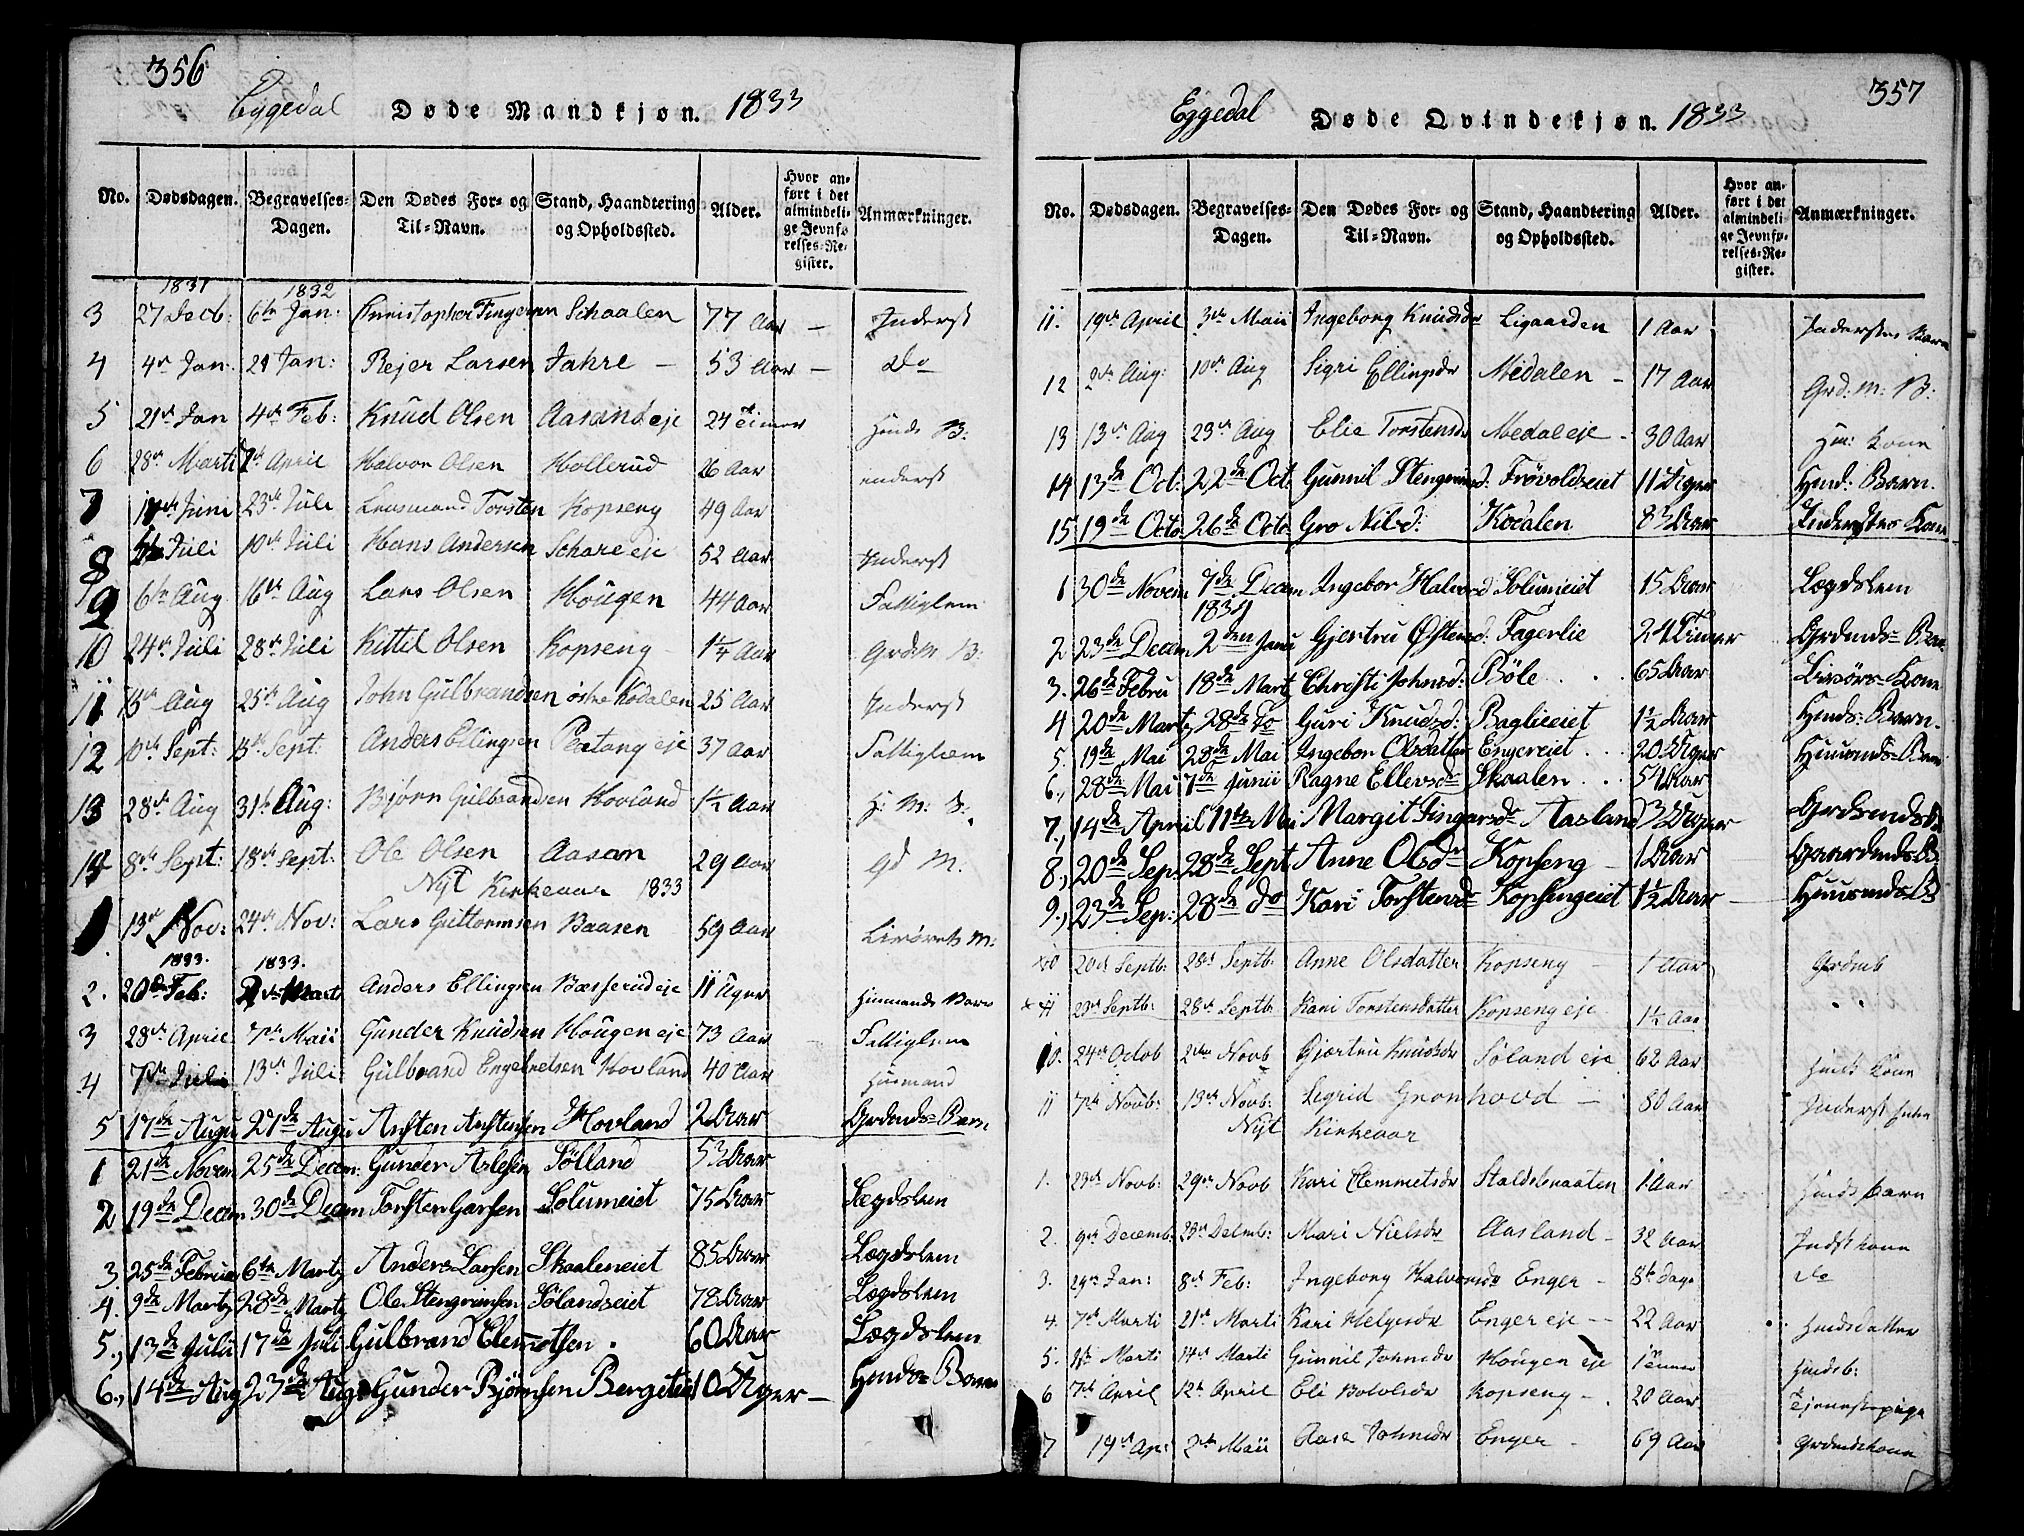 356
Eggedal Døde Mandkjøn. 1833
No. Dødsdagen. Begravelses-Dagen. Den Dødes For- og Til-Navn. Stand, Haandtering og Opholdssted. Alder. Hvor anført i det almindelige Jevnførelses-Register. Anmærkninger.
1831 1832
3 27 Decb: 6te Jan: Christopher Fingersen Schaalen 77 Aar – Inderst
4 4de Jan. 29 Jan: Rejer Larsen Jahre – 53 Aar – Do
5 21de Jan 4de Feb: Knud Olsen Aasand eje 24 Timer Hmds B:
6 28de Marti 1ste April Halvor Olsen Hollerud 26 Aar inderst
7 Juni 23de Juli Lensmand Torsten Kopseng 49 Aar
8 Juli 10de Juli Hans Andersen Schare eje 52 Aar Inderst
9 6te Aug 16de Aug Lars Olsen Hougen 44 Aar Fattiglem
10 24de Juli 28de Juli Kittil Olsen Kopseng 1¼ Aar Grdm B:
11 15de Aug 25de Aug John Gulbrandsen østre Kodalen 25 Aar Inderst
12 10de Sept: 15de Sept: Anders Ellingsen eje 37 Aar Fattiglem
13 28de Aug 31te Aug: Bjørn Gulbrandsen Hovland 1½ Aar H: M: B:
14 8de Sept: 18de Sept: Ole Olsen Aasan 29 Aar Gd M.
Nyt Kirkeaar 1833
1. 13de Nov: 24de Nov: Lars Guttormsen Baasen 59 Aar M:
1833. 1833.
2. 20de Feb: Marts Anders Ellingsen Bæsserud eje 11 Uger Huusmands Barn
3 28de April 7de Maii Gunder Knudsen Hougen eje 73 Aar Fattiglem
4 7de Juli 13de Juli: Gulbrand Engebretsen Hovland 40 Aar Husmand
5 17de Augu 27de Augu Ansten Anstensen Hovland 2 Aar Grdmds= Barn
1 21de Novem 25de Decem: Gunder Aslesen Sølland 53 Aar
2 19de Decem 30de Decem Torsten Larsen Solumeiet 75 Aar Lægdslem
3 25de Februar 6te Marty Anders Larsen Skaaleneiet 85 Aar Lægdslem
4. 9de Marty 28de Marty Ole Stengrimsen Sølandseiet 78 Aar Lægdslem
5., 13de Juli 17de Juli Gulbrand Clemmetsen . 60 Aar Lægdslem
6., 14de Aug 23de Aug Gunder Bjørnsen Bergeteiet 10 Uger – Hmds= Barn
357
Eggedal Døde Qvindekjøn. 1833
No. Dødsdagen. Begravelses-Dagen. Den Dødes For- og Til-Navn. Stand, Haandtering og Opholdssted. Alder. Hvor anført i det almindelige Jevnførelses-Register. Anmærkninger.
11. 19de April 3die Maii Ingeborg Knudsdr Ligaarden 1 Aar Inderstes Barn
12 2de Aug: 10de Aug Sigri Ellingsdr Medalen – 17 Aar Grd: M: B:
13 13de Aug 23de Aug Elie Torstensdr Medal eje – 30 Aar Hm: Kone
14 13de Oct: 22de Oct. Gunnil Stengrimsd. Frøvoldseiet 11 Uger Hmd: Barn.
15 19de Octo. 26de Octo. Gro Nilsd: Kodalen 83 Aar Inderstes Kone
1 30de Novem 7de Decem Ingebor Halvorsd Solumeiet 15 Aar Lægdslem
1834
2 23de Decem. 2den Janu Gjertru Østensd: Fagerlie 24 Timer Grdmds= Barn
3. 26de Febru 18de Mart Christi Johnsd: Bøle . . . 65 Aar Kone
4 20de Marty 28de Do Guri Knudsd: Baglieeiet 1½ Aar Hmds: Barn.
5. 19de Mai 28de Mai Ingebor Olsdatter Engereiet . . . 20 Uger Huusmds= Barn
6., 28de Mai 7de Junii Ragne Ellevsdr Skaalen . . . 54 Aar
7., 14de April 11te Mai Margit Fingarsdr Aasland 3 Uger Grdmds B
8., 20de Sep: 28de Sept Anne Olsdr Kopseng – 1 Aar Gaardmds B
9., 23de Sep: 28de do Kari Torstensdr Kopsengeiet 1½ Aar – Huusmds B
10 20de Septb: 28de Septb: Anne Olsdatter Kopseng 1 Aar Grdmb
11 23de Septb: 28de Septb: Kari Torstensdatter Kopseng eje 1½ Aar " "
10. 24de Octob 2den Novb Gjertru Knudsdr Søland eje 62 Aar Hmds Kone
11 7de Novb: 13de Novb: Sigrid Grønhovd – 80 Aar Inderst Enke
Nyt Kirkeaar
1. 23de Novb: 29de Novb Kari Clemmetsdr 1 Aar Hmds Barn
2. 9de Decemb: 28de Decmb: Mari Nielsdr Aasland – 32 Aar Indst kone
3. 29de Jan: 8de Feb: Ingeborg Halvorsdr Enger – 8te dage Do
4. 7de Marti 21de Marti Kari Helgesdr Enger eje – – 22 Aar Hmdsdatter
5. Marti 14de Marti Gunnil Johnsdr Hougen eje 1 Time Hmdsb:
6 7de April 12te April Eli Botolsdr Kopseng – 20 Aar Tjenestepige
7 19de Ap: 2den Maii Aase Johnsdr Enger – 69 Aar Grdmdskone